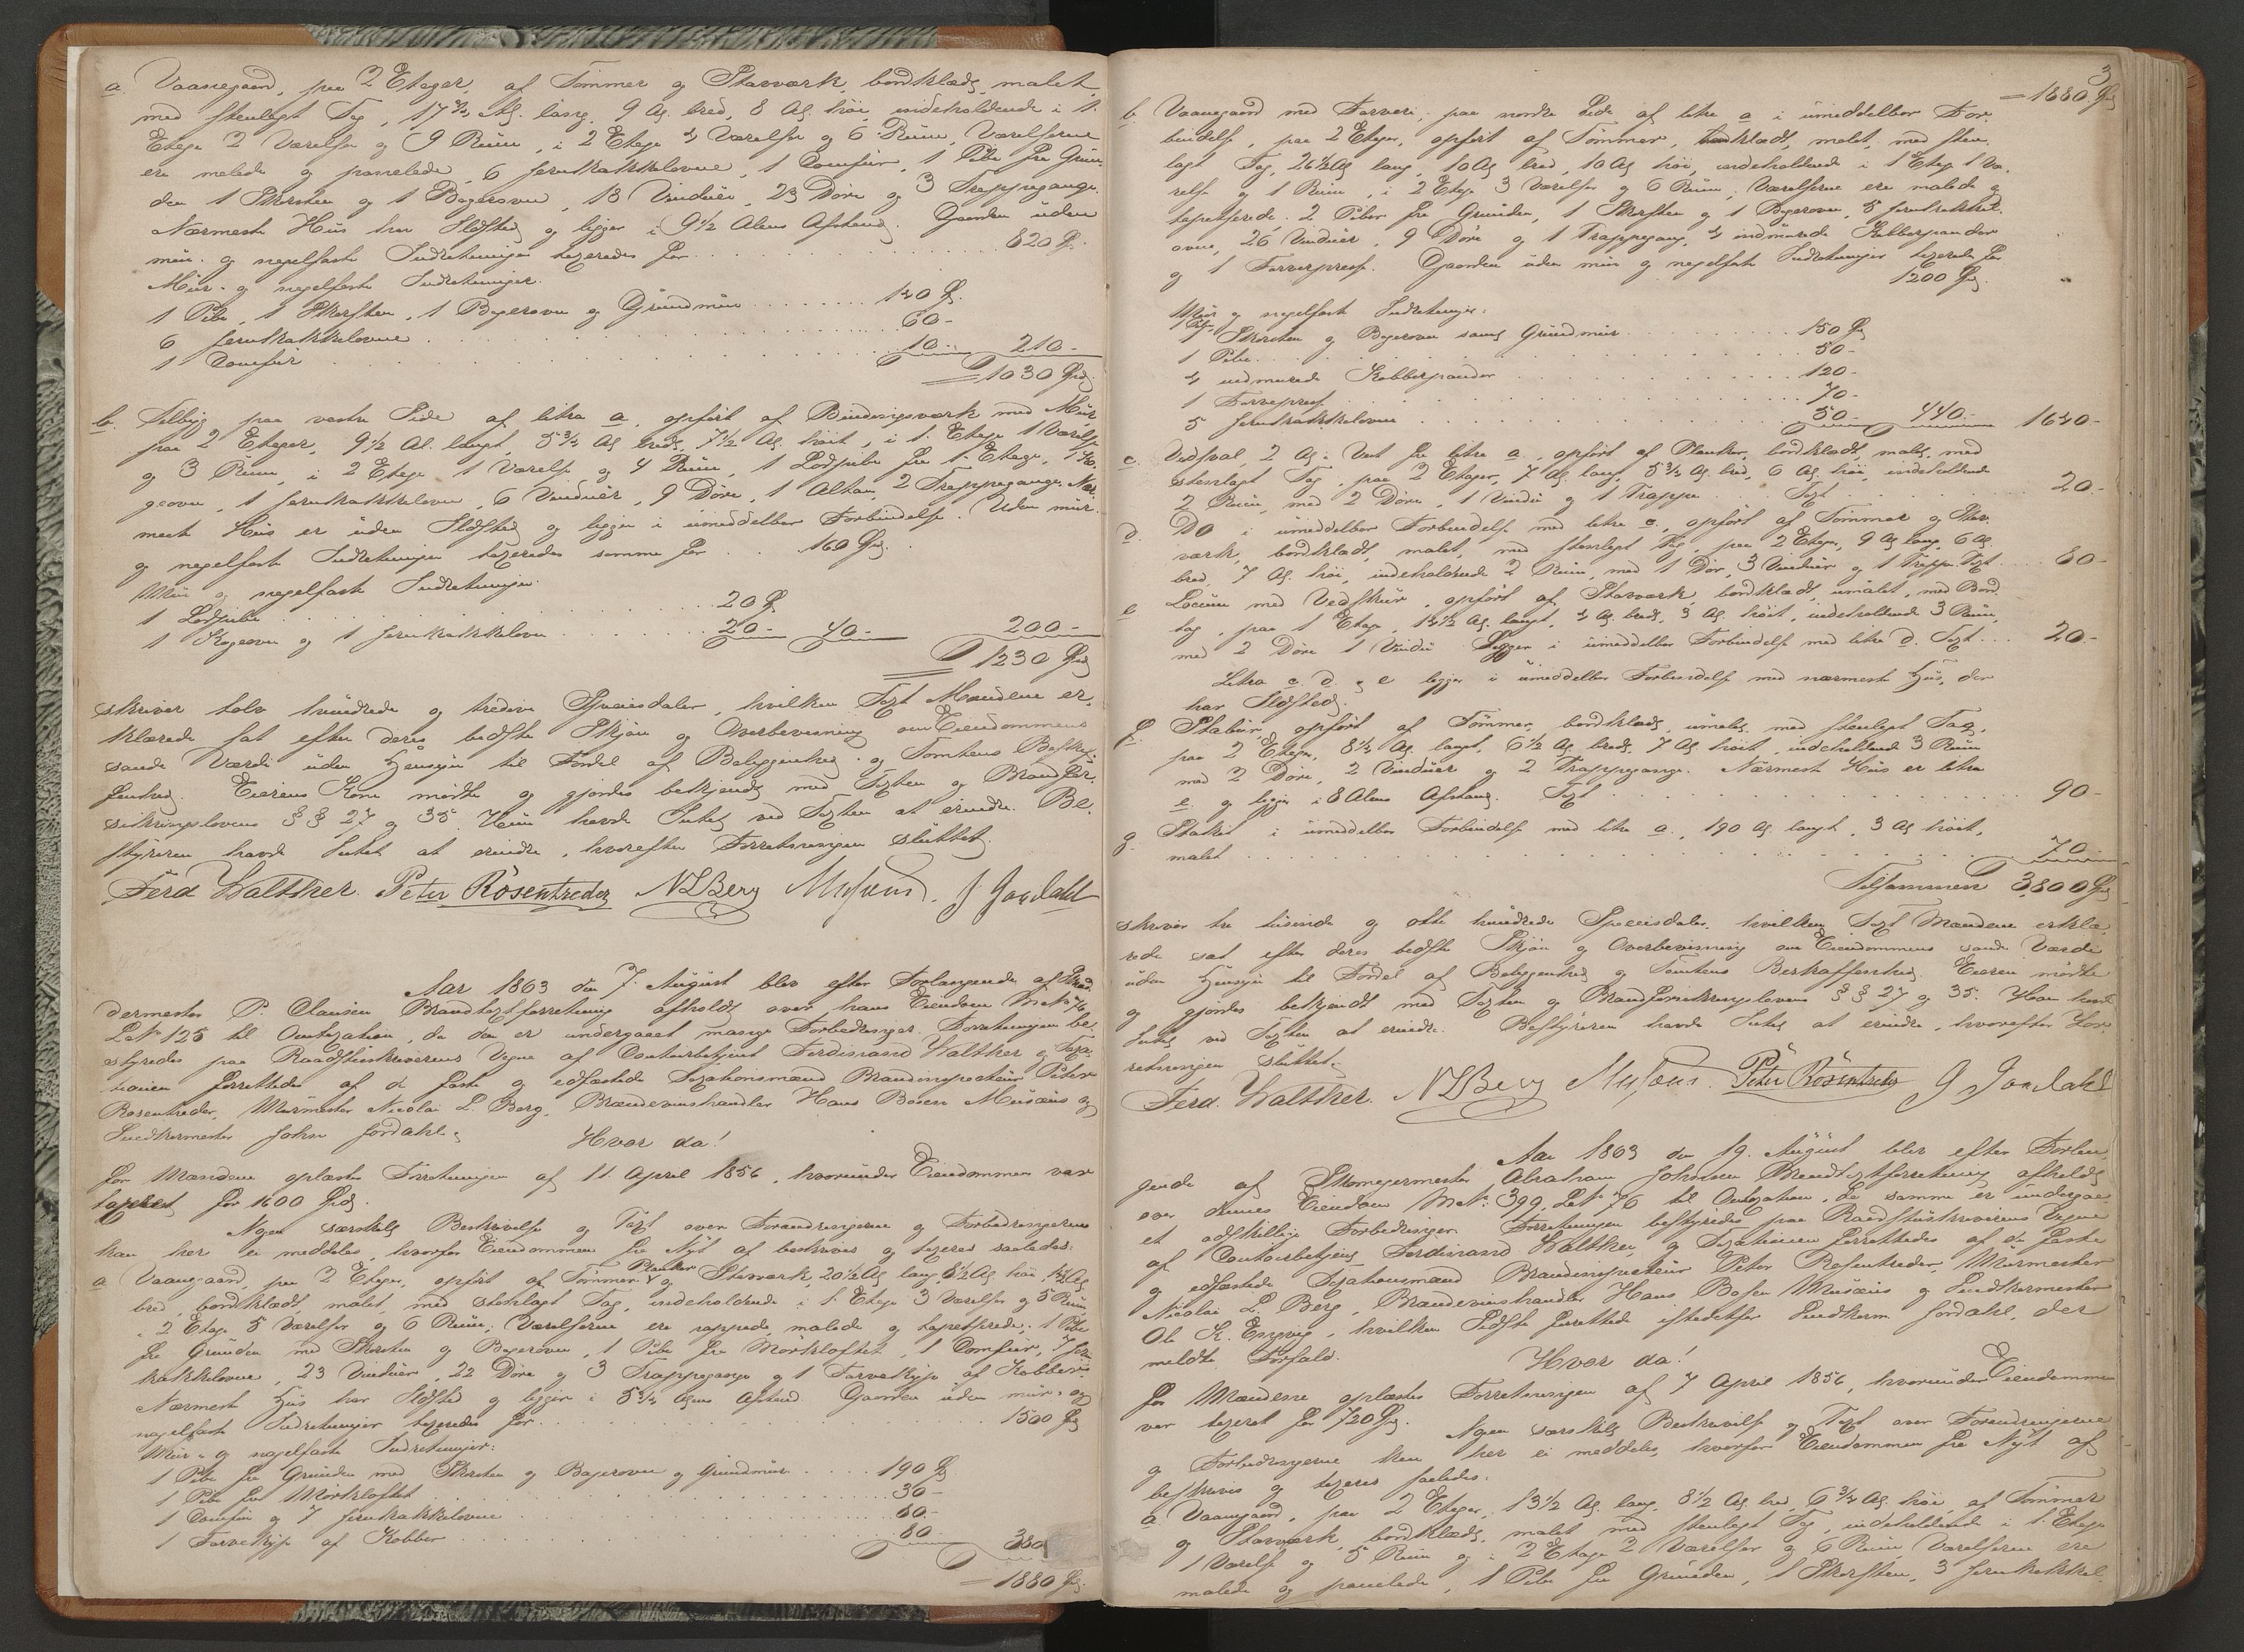 a. Vaanegaard, paa 2 Etager, af Tømmer og Stavværk, bordklædt, malet,
med stenlagt Tag, 17 3/4 Al. lang, 9 Al. bred, 8 Al. høi, indeholdende i 1.
Etage 2 Værelser og 9 Rum, i 2 Etage 4 Værelser og 6 Rum, Værelserne
ere malede og panelede, 6 Jernkakkelovne, 1 Comfur, 1 Pibe fra Grun-
den 1 Skorsten og 1 Bagerovn, 18 Vinduer, 23 Døre og 3 Trappegange.
Nærmeste Huus har Ildsted og ligger i 9 1/2 Alens Afstand. Gaarden uden
muur- og nagelfaste Indretninger taxeredes for . . . 820 Spd.
Muur- og nagelfaste Indretninger.
1 Pibe, 1 Skorsten, 1 Bagerovn og Grundmuur . . . 140 Spd.
6 Jernkakkelovne . . . 60 -
1 Comfur . . . 10 - 210 -
= 1030 Spd.
b. Tilbyg paa vestre Side af litra a, opført af Bindingsværk med Muur
paa 2 Etager, 9 1/2 Al. langt, 5 3/4 Al. bredt, 7 1/2 Al. høit, i 1. Etage 1 Værelse
og 3 Rum, i 2 Etage 1 Værelse og 4 Rum, 1 Lodpibe fra 1. Etage, 1 Ko-
geovn, 1 Jernkakkelovn, 6 Vinduer, 9 Døre, 1 Altan, 2 Trappegange. Nær-
meste Huus er uden Ildsted og ligger i umiddelbar Forbindelse. Uden muur-
og nagelfaste Indretninger taxeredes samme for . . 160 Spd.
Muur og nagelfaste Indretninger.
1 Lodpibe . . . 20 Spd.
1 Kogeovn og 1 Jernkakkelovn . . . 20 - 40 - 200 -
1230 Spd.
skriver tolv hundrede og tredive Speciesdaler, hvilken Taxt Mændene er-
klærede sat efter deres bedste Skjøn og Overbevisning om Eiendommens
sande Værdi uden Hensyn til Fordel af Beliggenhed og Tomtens Beskaf-
fenhed. Eierens Kone mødte og gjordes bekjendt med Taxten og Brandfor-
sikringslovens §§ 27 og 35. Hun havde Intet ved Taxten at erindre. Be-
styreren havde Intet at erindre, hvorefter Forretningen sluttet.
Ferd. Walther. Peter Rosentreder N L Berg Musæus. J Jordahl
Aar 1863 den 7. August blev efter Forlangende af Skræd-
dermester P. Clausen Brandtaxtforretning afholdt over hans Eiendom
Let No 125 til Omtaxation, da den er undergaaet mange Forbedringer. Forretningen be-
styredes paa Raadstueskriverens Vegne af Contoirbetjent Ferdinand Walther og Taxa-
tionen forrettedes af de faste og edfæstede Taxationsmænd Brandinspecteur Peter
Rosentreder, Muurmester Nicolai L. Berg, Brændevinshandler Hans Bosen Musæus og
Snedkermester John Jordahl,
Hvor da!
for Mændene oplæstes Forretningen af 11. April 1856, hvorunder Eiendommen var
taxeret for 1600 Spd.
Nogen særskilt Beskrivelse og Taxt over Forandringerne og Forbedringerne
kan her ei meddeles, hvorfor Eiendommen fra Nyt af beskrives og taxeres saaledes:
a Vaanegaard, paa 2 Etager, opført af Tømmer, Planker og Stavværk, 20 1/2 Al. lang, 8 1/2 Al. høi,
bred, bordklædt, malet, med stenlagt Tag, indeholdende i 1. Etage 3 Værelser og 5 Rum,
i 2 Etage 5 Værelser og 6 Rum; Værelserne ere rappede, malede og tapetserede; 1 Pibe
fra Grunden med Skorsten og Bagerovn, 1 Pibe fra Mørkloftet, 1 Comfur, 7 Jern-
kakkelovne, 23 Vinduer, 22 Døre og 3 Trappegange og 1 Farvekype af Kobber.
Nærmest Huus har Ildsted og ligger i 5 3/4 Alens Afstand. Gaarden uden muur- og
nagelfaste Indretninger taxeredes for . . . 1500 Spd.
Muur- og nagelfaste Indretninger:
1 Pibe fra Grunden med Skorsten og Bagerovn og Grundmuur . . . 190 Spd.
1 Pibe fra Mørkloftet . . . 30 -
1 Comfur og 7 Jernkakkelovne . . . 80 -
1 Farvekype af Kobber . . . 80 - 380
= 1880 Spd.
3
= 1880 Spd.
b. Vaanegaard med Farveri, paa nordre Side af litra a i umiddelbar For-
bindelse, paa 2 Etager, opført af Tømmer, bordklædt, malet, med sten-
lagt Tag, 26 1/2 Al. lang, 10 Al. bred, 10 Al. høi, indeholdende i 1 Etage 1 Væ-
relse og 1 Rum, i 2 Etage 3 Værelser og 6 Rum, Værelserne ere malede og
tapetserede. 2 Piber fra Grunden, 1 Skorsten og 1 Bagerovn, 5 Jernkakkel-
ovne, 26 Vinduer, 9 Døre og 1 Trappegang, 4 indmurede Kobberpander
og 1 Farverpresse. Gaarden uden muur og nagelfaste Indretninger taxeredes for
1200 Spd.
Muur og nagelfaste Indretninger:
1 Pibe Skorsten og Bagerovn samt Grundmuur . . . 150 Spd.
1 Pibe . . . 50 -
4 indmurede Kobberpander . . . 120 -
1 Farvepresse . . . 70 -
5 Jernkakkelovne . . . 50 - 440 - 1640 -
c. Vedsval, 2 Al. Vest fra litra a, opført af Planker, bordklædt, malet, med
stenlagt Tag, paa 2 Etager, 7 Al. lang, 5 3/4 Al. bred, 6 Al. høi, indeholdende
2 Rum, med 2 Døre, 1 Vindu og 1 Trappe . . Taxt . . . 20 -
d. Do i umiddelbar Forbindelse med litra c, opført af Tømmer og Stav-
værk, bordklædt, malet, med stenlagt Tag, paa 2 Etager, 9 Al. lang, 6 Al.
bred, 7 Al. høi, indeholdende 2 Rum, med 1 Dør, 3 Vinduer og 1 Trappe. Taxt . . . 80 -
e Locum med Vedskuur, opført af Stavværk bordklædt, umalet, med Bord-
tag, paa 1 Etage, 14 1/2 Al. langt, 4 Al. bredt, 3 Al. høit, indeholdende 3 Rum,
med 2 Døre 1 Vindu. Ligger i umiddelbar Forbindelse med litra d. Taxt . . . 20 -
Litra c. d. og e ligger i umiddelbar Forbindelse med nærmeste Huus, der
har Ildsted.
f. Stabuur opført af Tømmer, bordklædt, umalet, med stenlagt Tag,
paa 2 Etager, 8 1/4 Al. langt, 6 1/2 Al. bredt, 7 Al. høit, indeholdende 3 Rum
med 2 Døre, 2 Vinduer og 2 Trappegange. Nærmest Huus er litra
e. og ligger i 8 Alens Afstand. Taxt . . . 90 -
g. Stakit i umiddelbar Forbindelse med litra a, 190 Al. langt, 3 Al. høit,
malet . . . 70 -
Tilsammen 3800 Spd.
skriver tre tusinde og otte hundrede Speciesdaler, hvilken Taxt Mændene erklæ-
rede sat efter deres bedste Skjøn og Overbevisning om Eiendommens sande Værdi
uden Hensyn til Fordel af Beliggenhed og Tomtens Beskaffenhed. Eieren mødte
og gjordes bekjendt med Taxten og Brandforsikringslovens §§ 27 og 35. Han havde
Intet ved Taxten at erindre. Bestyreren havde Intet at erindre, hvorefter For-
retningen sluttet.
Ferd. Walther. N L Berg Musæus. Peter Rosentreder J Jordahl
Aar 1863 den 19. August blev efter Forlan-
gende af Skomagermester Abraham Johnsen Brandtaxtforretning afholdt
over dennes Eiendom Mat: 399, Let No 76 til Omtaxation, da samme er undergaa-
et adskillige Forbedringer. Forretningen bestyredes paa Raadstueskriverens Vegne
af Contoirbetjent Ferdinand Walther, og Taxationen forrettedes af de faste
og edfæstede Taxationsmænd Brandinspecteur Peter Rosentreder, Muurmester
Nicolai L. Berg, Brændevinshandler Hans Bosen Musæus og Snedkermester
Ole K. Engvig, hvilken Sidste forrettede istedetfor Snedkerm. Jordahl, der
meldte Forfald.
Hvor da!
for Mændene oplæstes Forretningen af 7 April 1856, hvorunder Eiendommen
var taxeret for 720 Spd. Nogen særskilt Beskrivelse og Taxt over Forandringerne
og Forbedringerne kan her ei meddeles, hvorfor Eiendommen fra Nyt af
beskrives og taxeres saaledes:
a Vaanegaard, paa 2 Etager, 13 1/2 Al. lang, 8 1/2 Al. bred, 6 3/4 Al. høi, af Tømmer
og Stavværk, bordklædt, malet med stenlagt Tag, indeholdende i 1. Etage
1 Værelse og 5 Rum og i 2 Etage 2 Værelser og 6 Rum. Værelserne ere
malede og panelede, 1 Pibe fra Grunden, 1 Skorsten, 3 Jernkakkel-